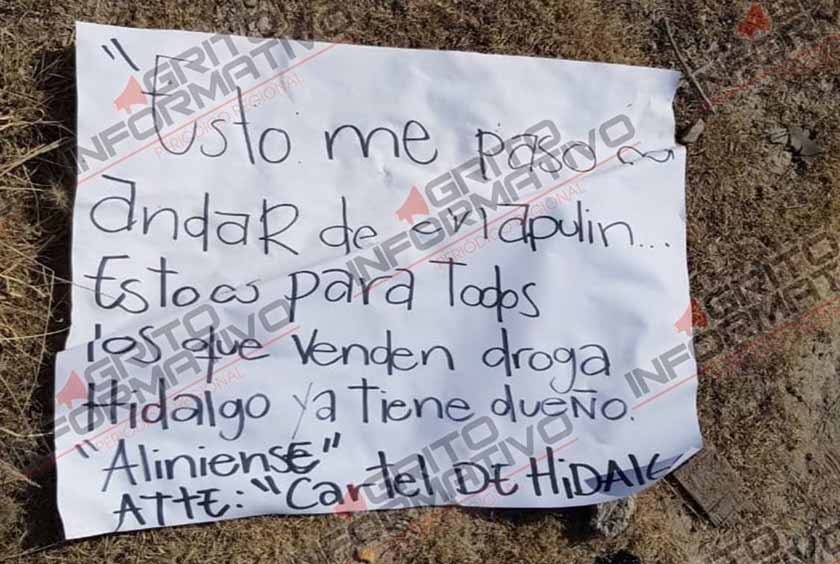 "Esto me paso
andaR de cHapulin...
Esto es para Todos
los que venden droga
Hidalgo ya Tiene dueÑo.
"AliniensE"
ATTE: "Cartel DE HiDAlG
GRITO
INFORMATIVO
PERIÓDICO REGIONAL
GRITO
INFORMATIVO
PERIÓDICO REGIONAL
GRITO
INFORMATIVO
GRITO
INFORMATIVO
GRITO
INFORMATIVO